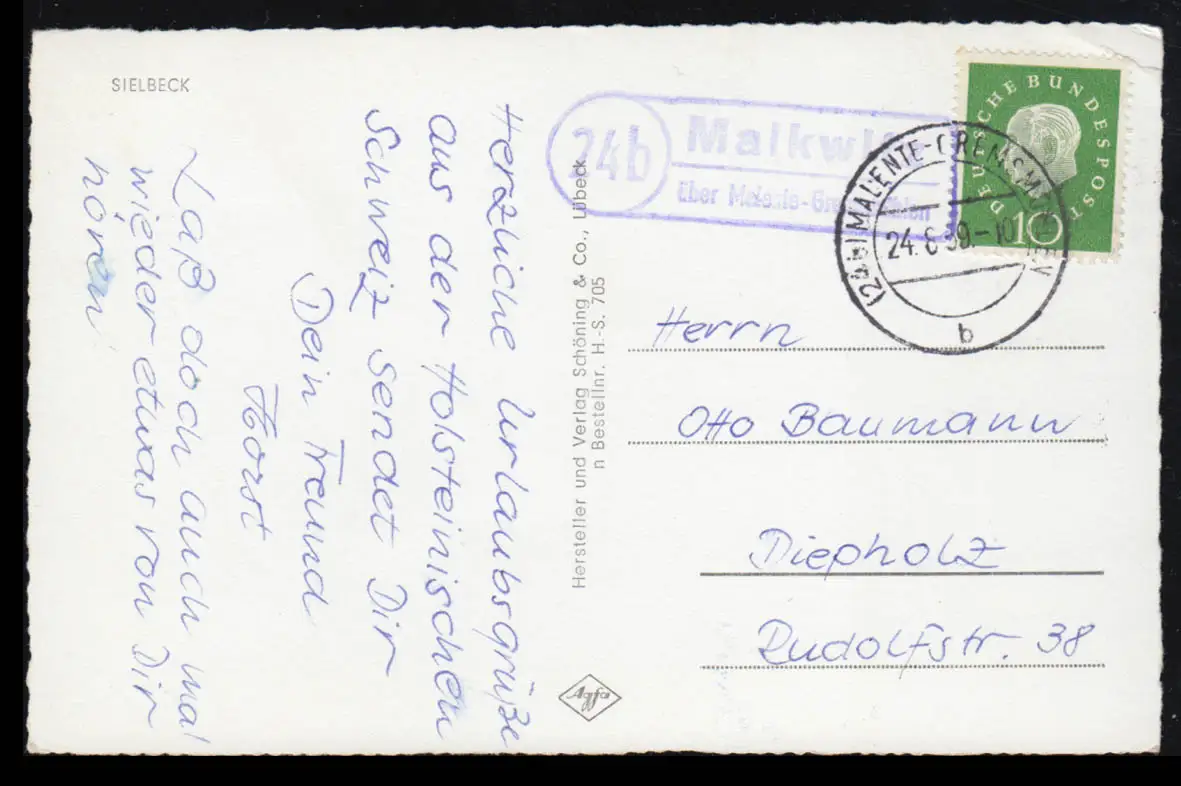 SIELBECK
Herzliche Urlaubsgrüße
aus der Holsteinischen
Schweiz sendet Dir
Dein Freund
Horst
Laß doch auch mal
wieder etwas von Dir
hören
Hersteller und Verlag Schöning & Co., Lübeck
n Bestellnr. H.-S. 705
Agfa
24b
über Malente-
DEUTSCHE BUNDESPOST
10
MALENTE-GREMSMÜHLEN
24. 59.-10
b
Herrn
Otto Baumann
Diepholz
Rudolfstr. 38